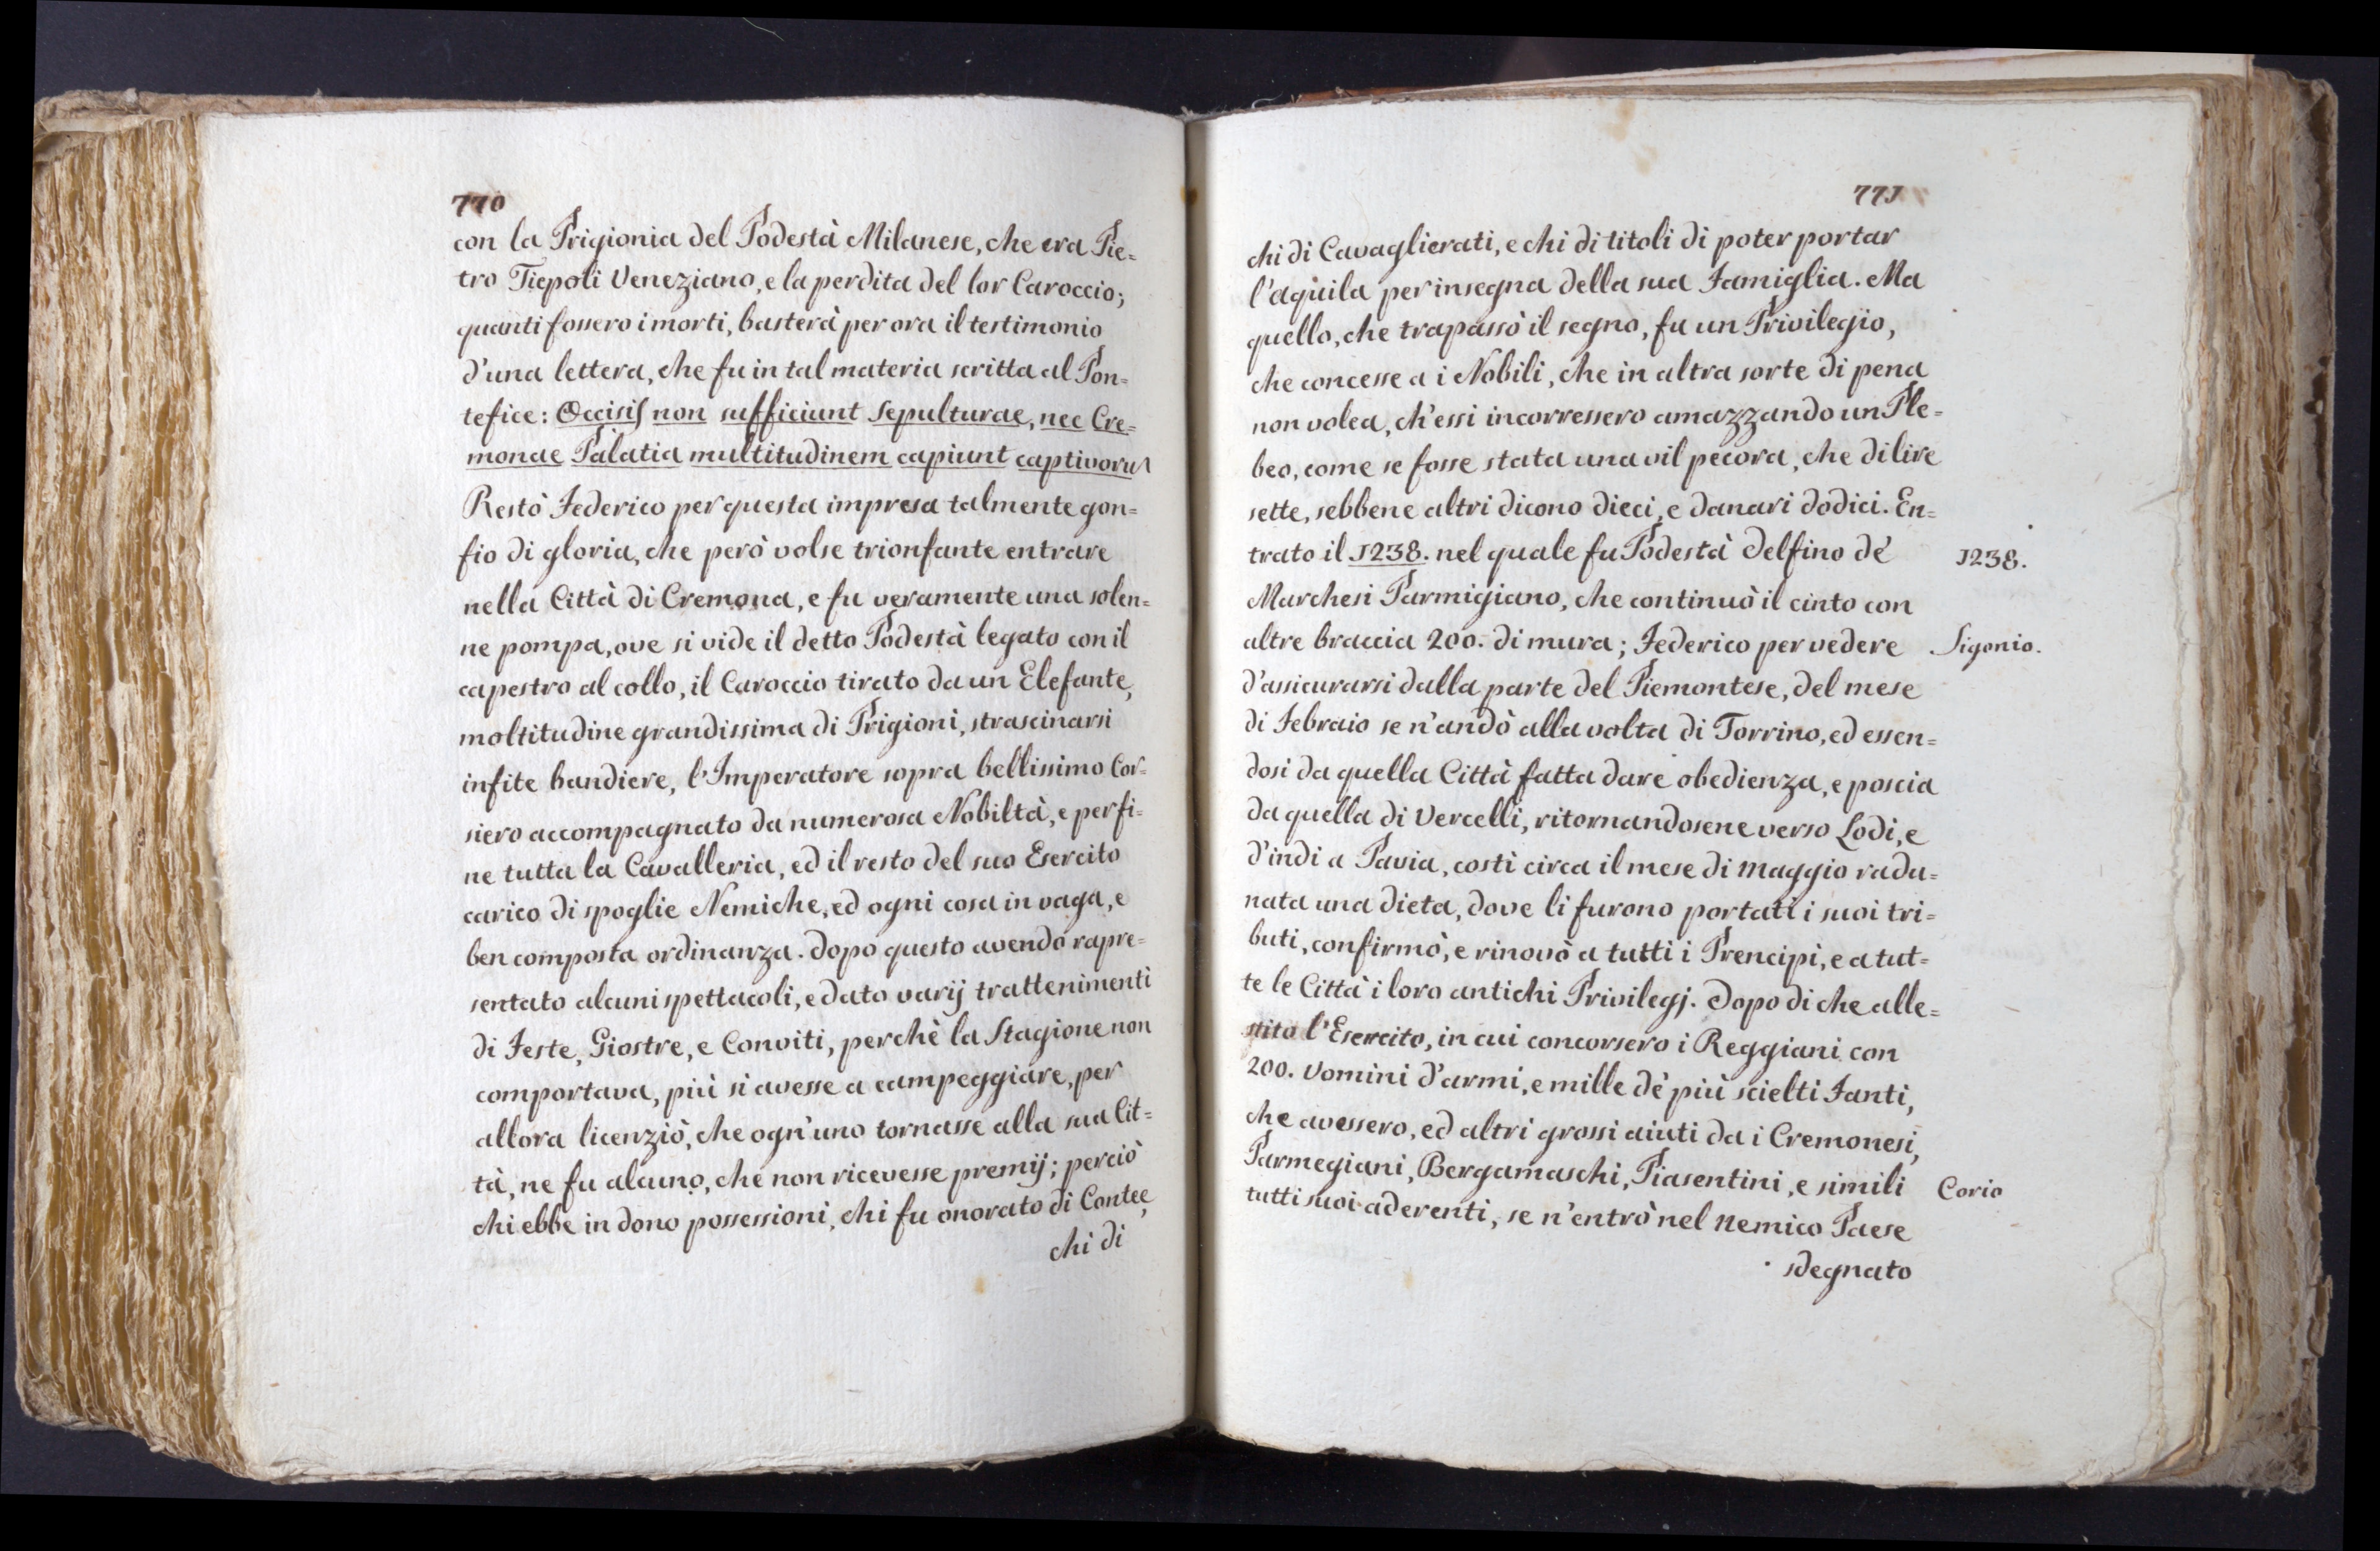 770
con la Prigionia del Podestà Milanese, che era Pie=
tro Tiepoli Veneziano, e la perdita del lor Caroccio;
quanti fossero i morti, basterà per ora il testimonio
d'una lettera, che fu in tal materia scritta al Pon=
tefice: Occisis non sufficiunt Sepulturae, nec Cre=
monae Palatia multitudinem capiunt captivoru
Restò Federico per questa impresa talmente gon=
fio di gloria, che però volse trionfante entrare
nella Città di Cremona, e fu veramente una solen=
ne pompa, ove si vide il detto Podestà legato con il
capestro al collo, il Caroccio tirato da un Elefante,
moltitudine grandissima di Prigioni, strascinarsi
infite bandiere, l'Imperatore sopra bellissimo Cor=
siero accompagnato da numerosa Nobiltà, e perfi=
ne tutta la Cavalleria, ed il resto del suo Esercito
carico di spoglie Nemiche, ed ogni cosa in vaga, e
ben composta ordinanza. Dopo questo avendo rapre=
sentato alcuni spettacoli, e dato varij trattenimenti
di Feste, Giostre, e Conviti, perchè la Stagione non
comportava, più si avesse a campeggiare, per
allora licenziò, che ogn'uno tornasse alla sua Cit=
tà, ne fu alcuno, che non ricevesse premij; perciò
chi ebbe in dono possessioni, chi fu onorato di Contee,
chi di
771
chi di Cavaglierati, e chi di titoli di poter portar
l'aquila per insegna della sua Famiglia. Ma
quello, che trapassò il segno, fu un Privilegio,
che concesse a i Nobili, che in altra sorte di pena
non volea, ch'essi incorressero amazzando un Ple=
beo, come se fosse stata una vil pecora, che di lire
sette, sebbene altri dicono dieci, e danari dodici. En=
trato il 1238. nel quale fu Podestà Delfino de'
1238.
Marchesi Parmigiano, che continuò il cinto con
altre braccia 200. di mura; Federico per vedere
Sigonio.
d'assicurarsi dalla parte del Piemontese, del mese
di Febraio se n'andò alla volta di Torrino, ed essen=
dosi da quella Città fatta dare obedienza, e poscia
da quella di Vercelli, ritornandosene verso Lodi, e
d'indi a Pavia, costì circa il mese di Maggio radu=
nata una dieta, dove li furono portati i suoi tri=
buti, confirmò, e rinovò a tutti i Prencipi, e a tut=
te le Città i loro antichi Privilegj. Dopo di che alle=
stito l'Esercito, in cui concorsero i Reggiani con
200. Uomini d'armi, e mille de' più scielti Fanti,
che avessero, ed altri grossi aiuti da i Cremonesi,
Parmegiani, Bergamaschi, Piasentini, e simili
Corio
tutti suoi aderenti, se n'entrò nel Nemico Paese
sdegnato